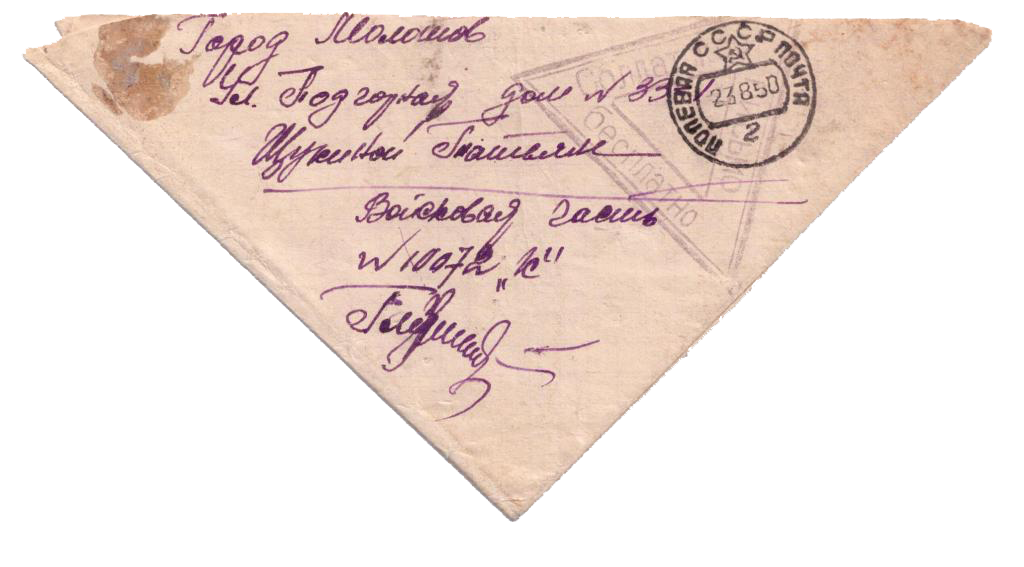 Город Молотов
Ул. Подгорная дом № 33
Щукиной Татьяне
Войсковая часть
№ 10072 „К"
СССР
ПОЛЕВАЯ ПОЧТА
23 8 50
2
бесплатно